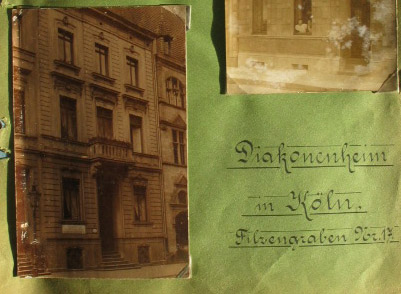 Diakonenheim
in Köln.
Filzengraben Nr. 17.